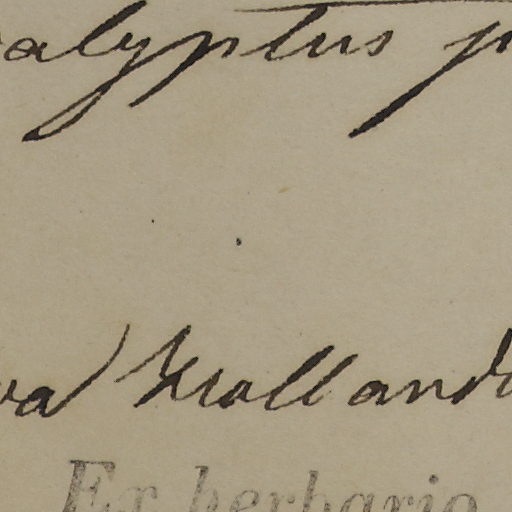 alyptus p
va Holland
Ex herbario